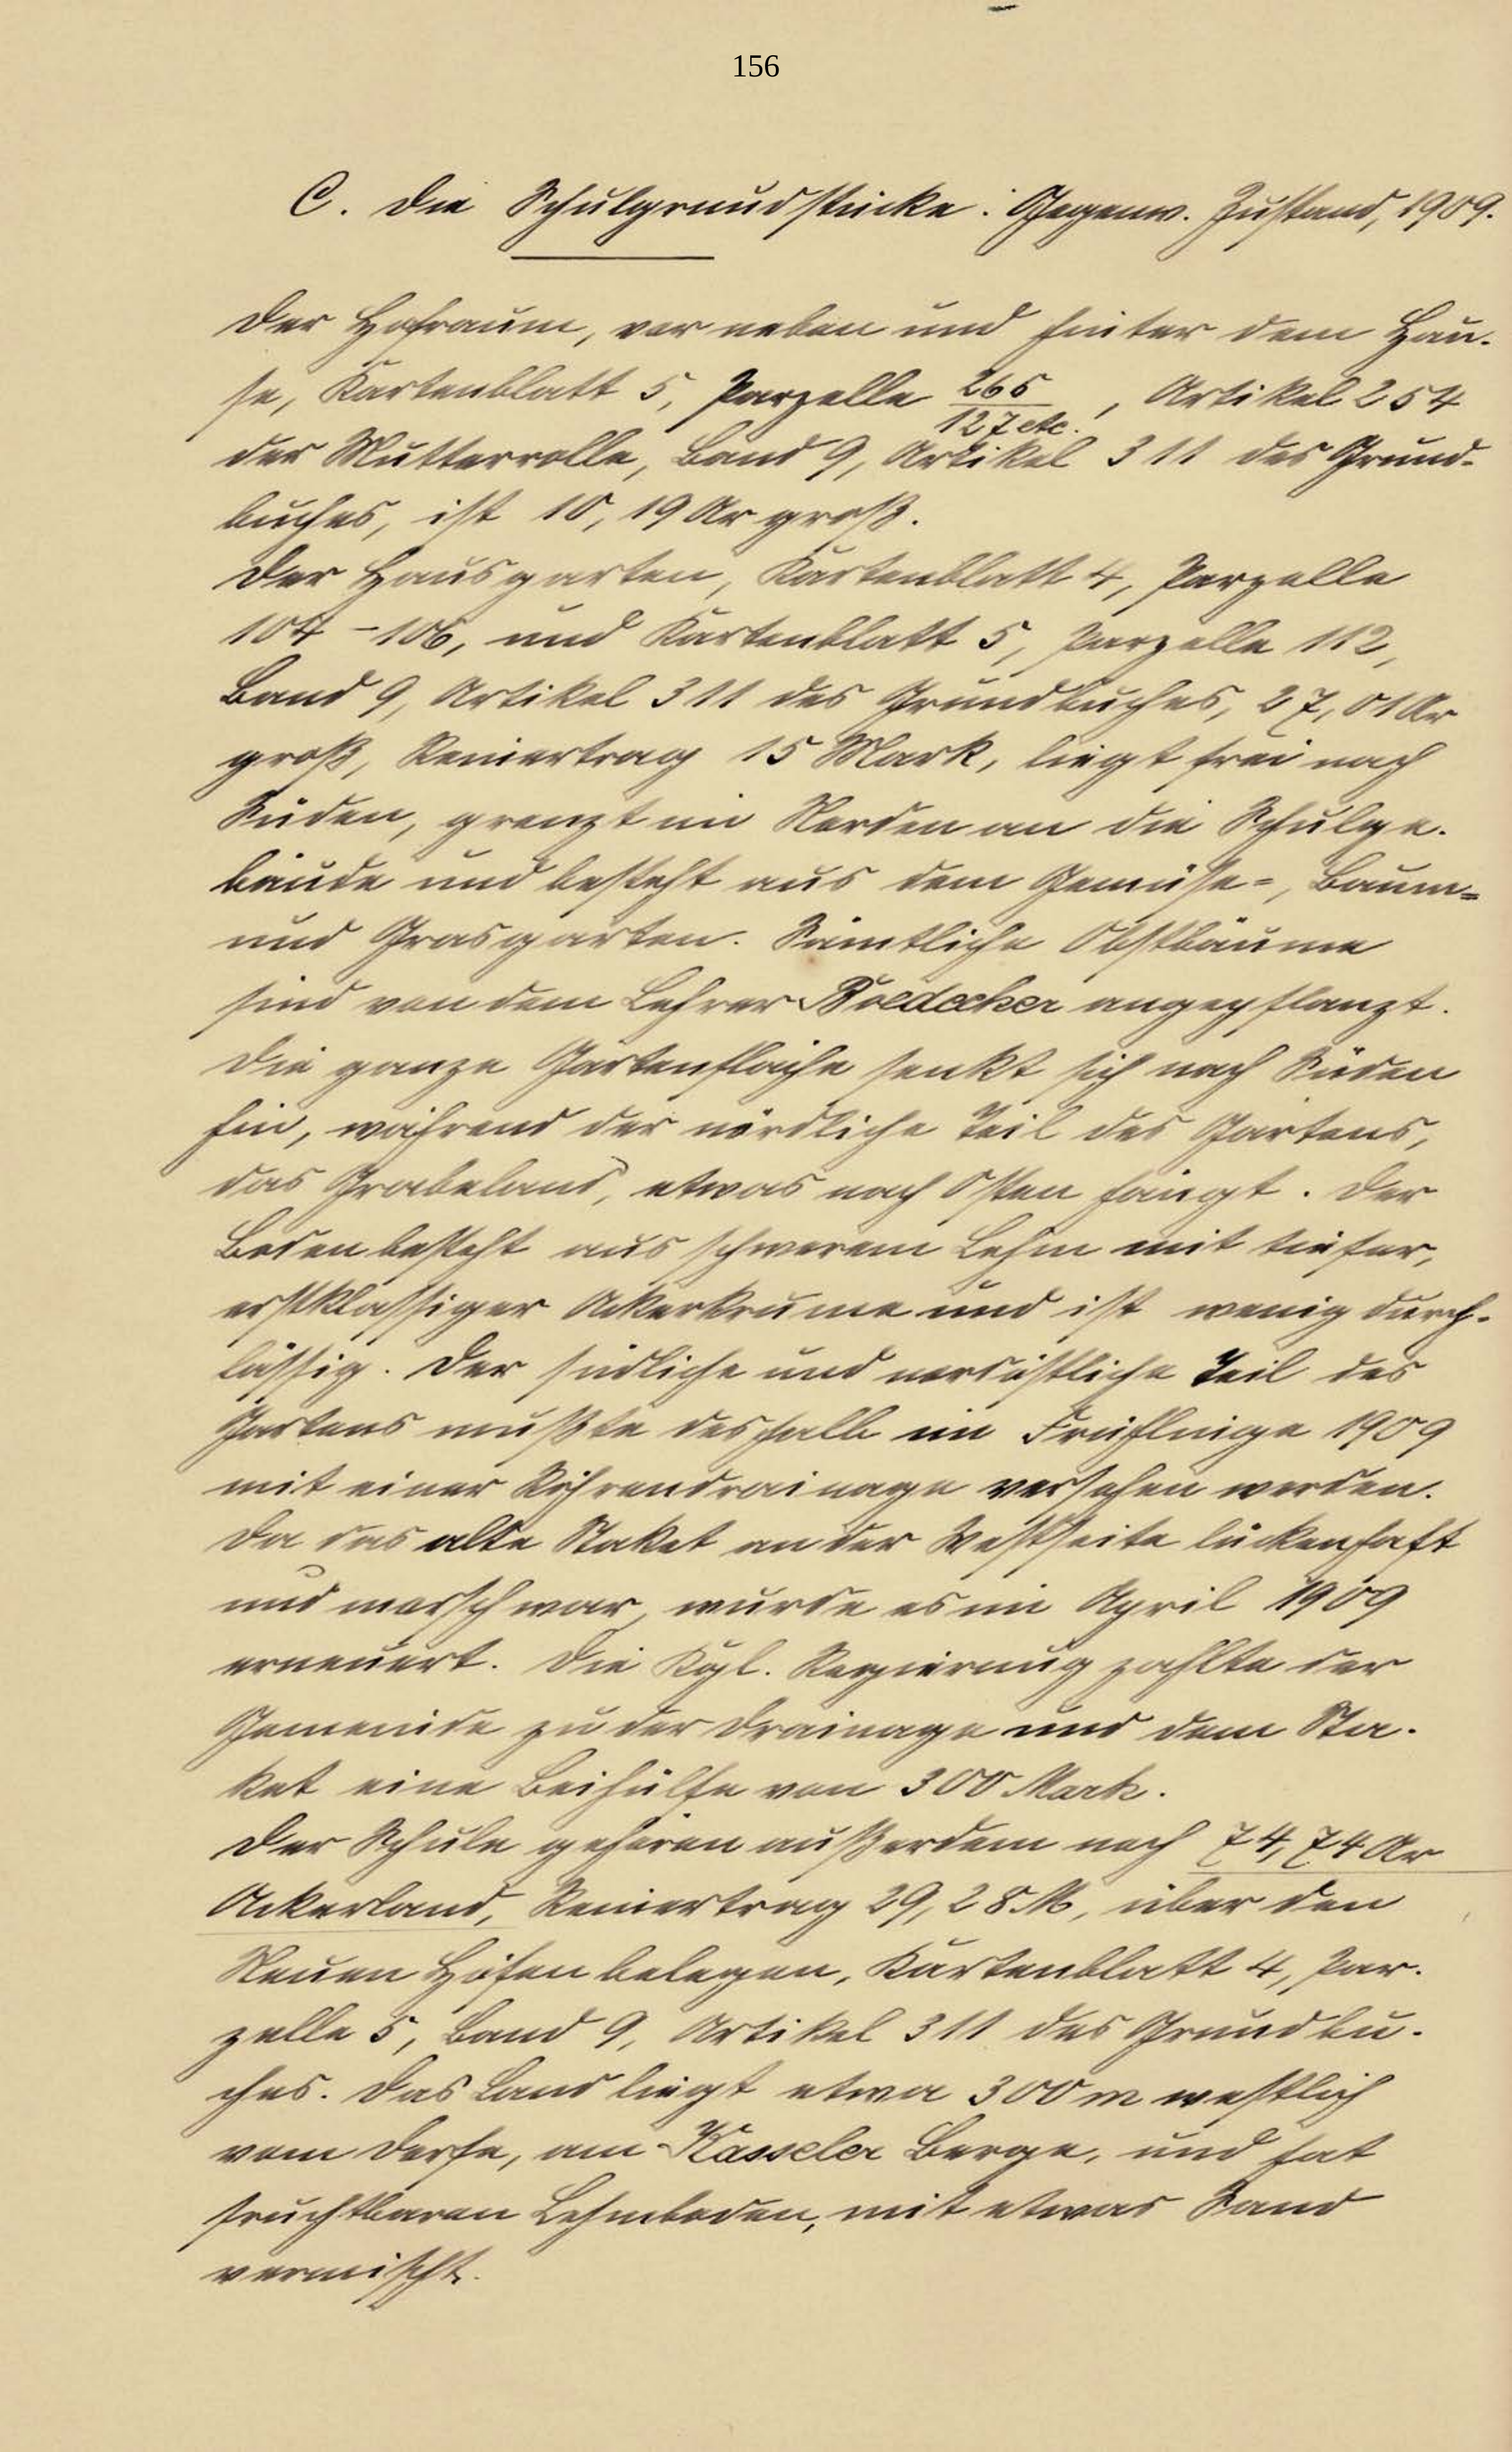 156
C. Die Schulgrundstücke. Gegenw. Zustand, 1909.
Der Hofraum, vor neben und hinter dem Hau-
se, Kartenblatt 5, Parzelle 265/127 etc., Artikel 254
der Mutterrolle, Band 9, Artikel 311 des Grund-
buches, ist 10,19 Ar groß.
Der Hausgarten, Kartenblatt 4, Parzelle
104-106, und Kartenblatt 5, Parzelle 112,
Band 9, Artikel 311 des Grundbuches, 27,01 Ar
groß, Reinertrag 15 Mark, liegt frei nach
Süden, grenzt im Norden an die Schulge-
bäude und besteht aus dem Gemüse-, Baum-
und Grasgarten. Sämtliche Obstbäume
sind von dem Lehrer Boedecker angepflanzt.
Die ganze Gartenfläche senkt sich nach Süden
hin, während der nördliche Teil des Gartens,
das Grabeland, etwas nach Osten hängt. Der
Boden besteht aus schwerem Lehm mit tiefer,
erstklassiger Ackerkrume und ist wenig durch-
lässig. Der südliche und nordöstliche Teil des
Gartens mußte deshalb im Frühlinge 1909
mit einer Röhrendrainage versehen werden.
Da das alte Staket an der Westseite lückenhaft
und morsch war, wurde es im April 1909
erneuert. Die Kgl. Regierung zahlte der
Gemeinde zu der Drainage und dem Sta-
ket eine Beihülfe von 300 Mark.
Der Schule gehören außerdem noch 74,74 Ar
Ackerland, Reinertrag 29,28 M, über den
Neuen Höfen belegen, Kartenblatt 4, Par-
zelle 5, Band 9, Artikel 311 des Grundbu-
ches. Das Land liegt etwa 300 m westlich
vom Dorfe, am Kasseler Berge, und hat
fruchtbaren Lehmboden, mit etwas Sand
vermischt.